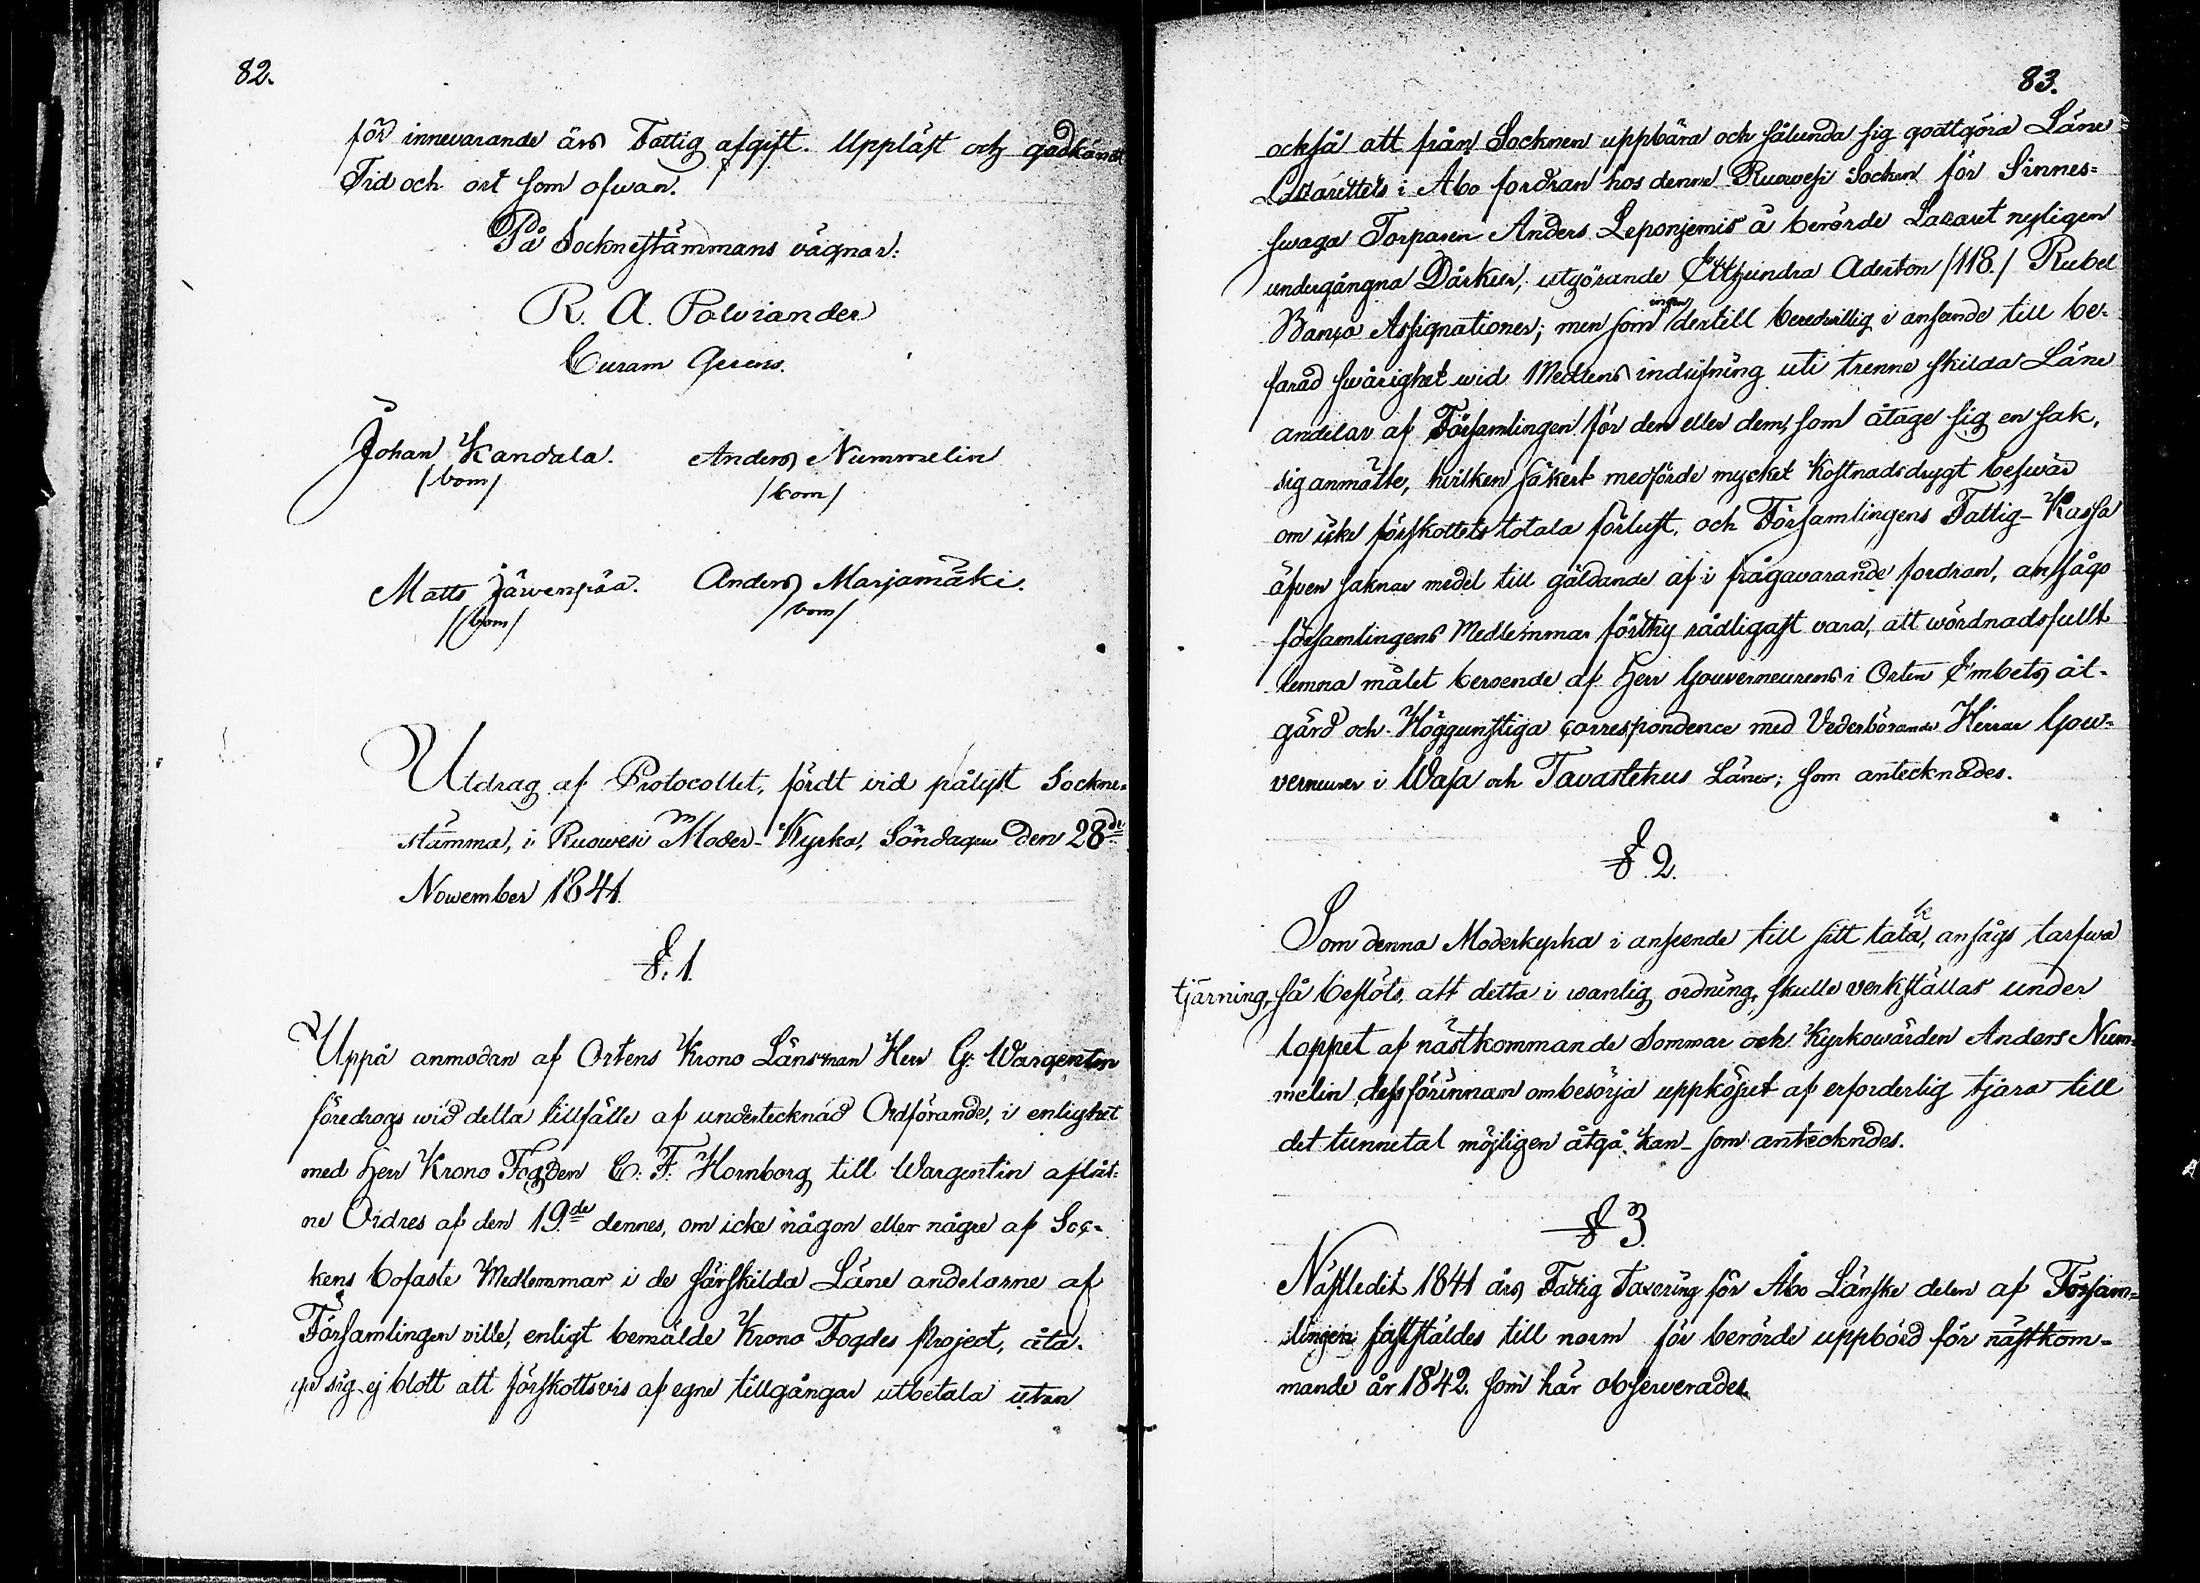 82.
för innevarande års Fattig afgift. Uppläst och godkändt
Tid och ort som ofwan.
På Socknestämmans vägnar:
R. A. Palviander
Curam Gerens.
Johan Kandala. Anders Nummelin
/bom/ /bom/
Matts Jäwenpää. Anders Marjamäki.
/bom/ /bom/
Utdrag af Protocollet, fördt vid pålyst Sockne-
stämma, i Ruowesi Moder-Kyrka, Söndagen den 28de
November 1841.
§. 1.
Uppå anmodan af Ortens Krono Länsman Herr G. Wargentin
föredrogs wid detta tillfälle af undertecknad Ordförande, i enlighet
med Herr Krono Fogden C. F. Hornborg till Wargentin aflåt-
ne Ordres af den 19de dennes, om icke någon eller någre af Soc-
kens bofaste Medlemmar i de särskilda Läne andelarne af
Församlingen ville, enligt bemälde Krono Fogdes Project, åta-
ge sig ej blott att förskottsvis af egne tillgångar utbetala utan
83.
också att från Socknen uppbära och sålunda sig godtgöra Läne
Lazarettets i Åbo fordran hos denne Ruowesi Socken för Sinnes-
swaga Torparen Anders Leponjemis å berörde Lazaret nyligen
undergångna Dårkur, utgörande Etthundra Aderton /118./ Rubel
Banco Assignationer; men som ingen dertill beredvillig i anseende till be-
farad swårighet wid Medlens indrifning uti trenne skilda Läne
andelar af Församlingen för den eller dem, som åtage sig en sak,
sig anmälte, hvilken säkert medförde mycket kostnadsdrygt beswär
om icke förskottets totala förlust, och Församlingens Fattig-Kassa
äfven saknar medel till gäldande af i frågavarande fordran, ansågo
församlingens Medlemmar förthy rådligast vara, att wördnadsfullt
lemna målet beroende af Herr Gouverneurens i Orten Embets åt-
gärd och Höggunstiga correspondence med Vederbörande Herrar Gou-
verneurer i Wasa och Tavastehus Läner; som antecknades.
§ 2.
Som denna Moderkyrka i anseende till sitt tak, ansågs tarfwa
tjärning, så beslöts, att detta i wanlig ordning, skulle verkställas under
loppet af nästkommande Sommar och Kyrkowärden Anders Num-
melin dessförinnan ombesörja uppköpet af erforderlig tjära till
det tunnetal möjligen åtgå kan - som antecknades.
§ 3.
Nästledit 1841 års Fattig Taxering för Åbo Länske delen af Försam-
lingen fastställdes till norm för berörde uppbörd för nästkom-
mande år 1842. som här observerades.